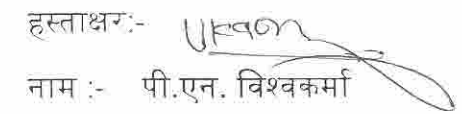 हस्ताक्षर:-
नाम :- पी.एन. विश्वकर्मा